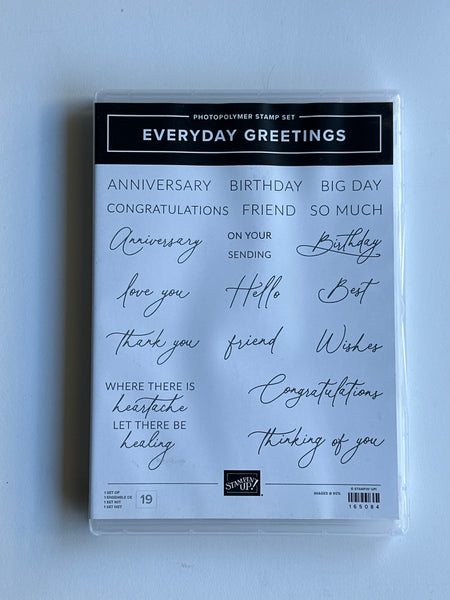 PHOTOPOLYMER STAMP SET
EVERYDAY GREETINGS
ANNIVERSARY BIRTHDAY BIG DAY
CONGRATULATIONS FRIEND SO MUCH
Anniversary ON YOUR Birthday
SENDING
love you Hello Best
thank you friend Wishes
WHERE THERE IS
heartache
LET THERE BE
healing
Congratulations
Thinking of you
1 SET OF
1 ENSEMBLE DE
1 SET MIT
1 SET MET
19
STAMPIN' UP!
IMAGES @ 95%
© STAMPIN' UP!
165084